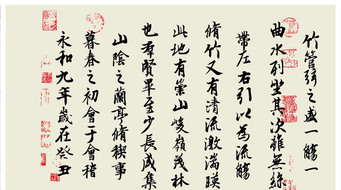 永和九年歲在癸丑
暮春之初會于會稽
山陰之蘭亭脩稧事
也羣賢畢至少長咸集
此地有崇山峻領茂林
脩竹又有清流激湍暎
帶左右引以為流觴
曲水列坐其次雖無絲
竹管弦之盛一觴一